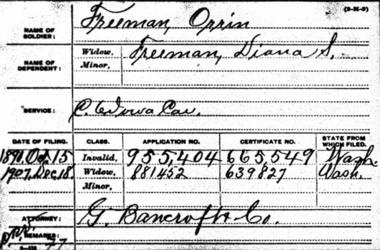 (3-26-9)
NAME OF SOLDIER: Freeman, Orrin
NAME OF DEPENDENT: Widow, Freeman, Diana S.
Minor,
SERVICE: C. 2 Iowa Cav.
DATE OF FILING. CLASS. APPLICATION NO. CERTIFICATE NO. STATE FROM WHICH FILED.
1890, Oct 15 Invalid, 955,404 665,549 Wash.
1907, Dec 18. Widow, 881452 639827 Wash.
Minor,
ATTORNEY: G. Bancroft & Co.
REMARKS: